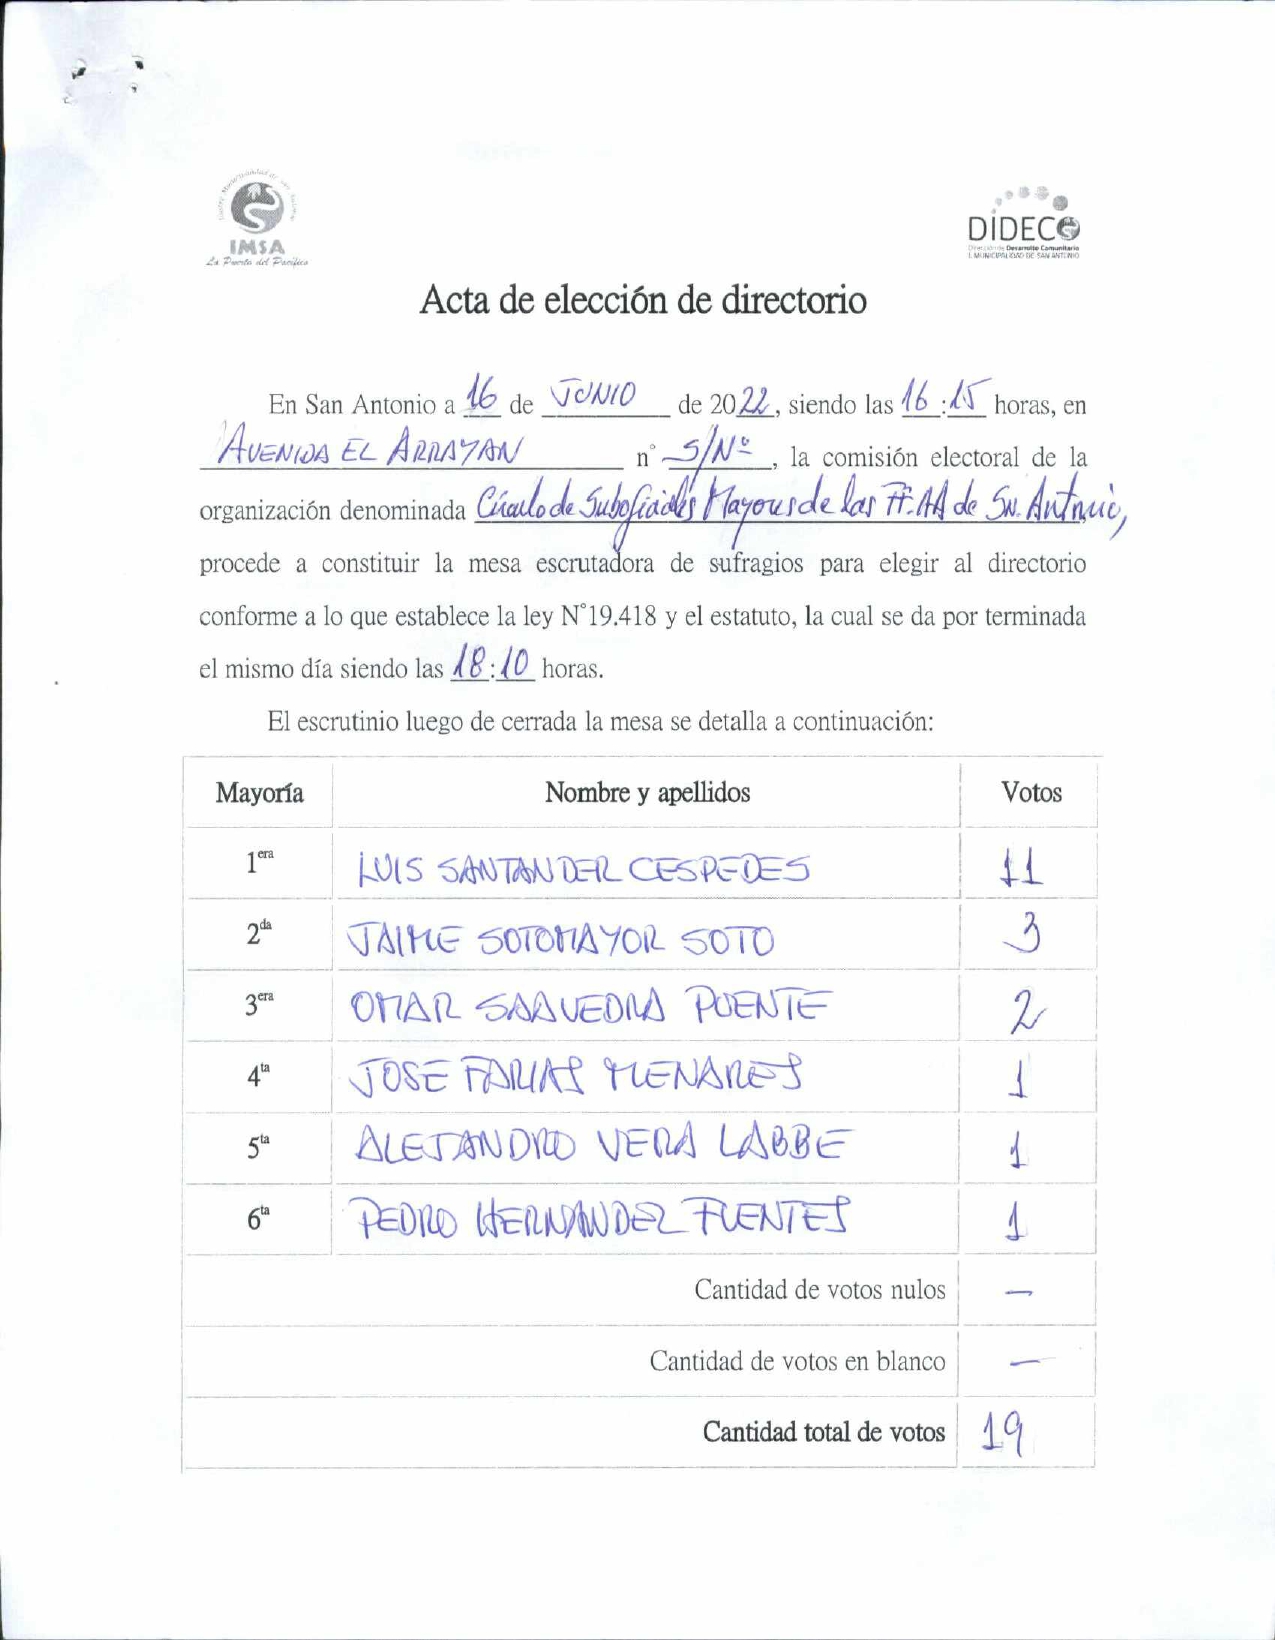 IMSA
La Puerta del Pacífico
DIDECO
Dirección de Desarrollo Comunitario
I. MUNICIPALIDAD DE SAN ANTONIO
Acta de elección de directorio
En San Antonio a 16 de JUNIO de 2022, siendo las 16:15 horas, en
AVENIDA EL ARRAYAN n° S/Nº, la comisión electoral de la
organización denominada Círculo de Suboficiales Mayores de las FF.AA de Sn. Antonio,
procede a constituir la mesa escrutadora de sufragios para elegir al directorio
conforme a lo que establece la ley N°19.418 y el estatuto, la cual se da por terminada
el mismo día siendo las 18:10 horas.
El escrutinio luego de cerrada la mesa se detalla a continuación:
Mayoría Nombre y apellidos Votos
1era LUIS SANTANDER CESPEDES 11
2da JAIME SOTOMAYOR SOTO 3
3era OMAR SAAVEDRA PUENTE 2
4ta JOSE FARIAS MENARES 1
5ta ALEJANDRO VERA LABBE 1
6ta PEDRO HERNANDEZ FUENTES 1
Cantidad de votos nulos —
Cantidad de votos en blanco —
Cantidad total de votos 19